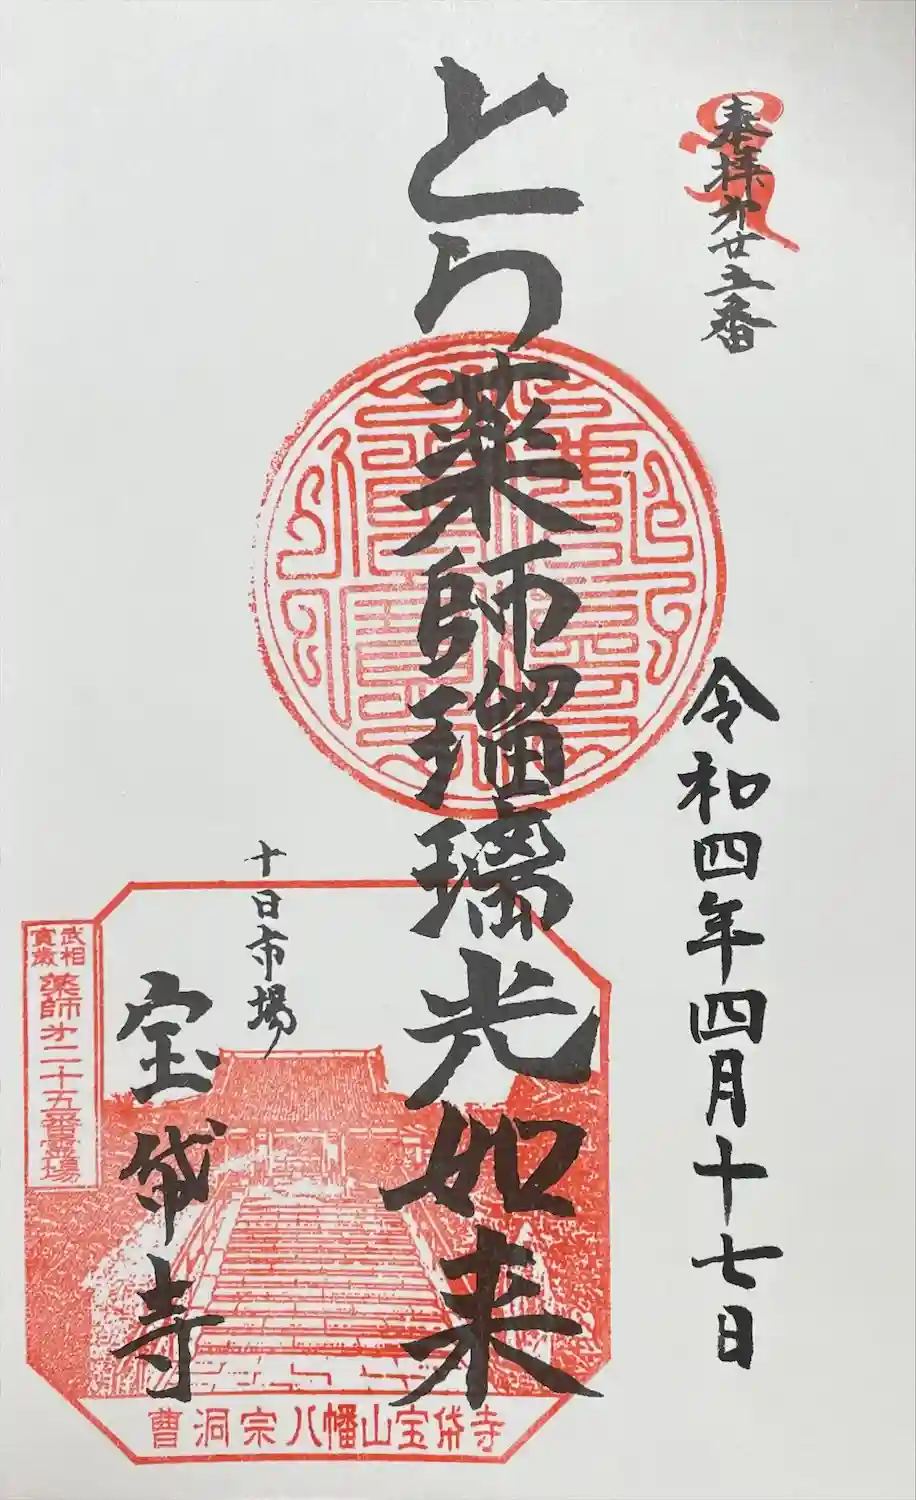 奉拝第廿五番
令和四年四月十七日
とら薬師瑠璃光如来
十日市場
宝袋寺
武相
寅歳
薬師第二十五番霊場
曹洞宗八幡山宝袋寺